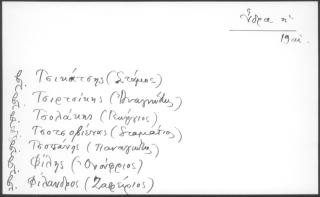 Ὕδρα η'
19 αι.
βλ. Τσικάτσης (Στάμος)
βλ. Τσιρτσίκης (Ἀναγνώστης)
βλ. Τσολάκης (Γεώργιος)
βλ. Τσοτσοβίνας (Σταμάτιος)
βλ. Τσοπάνης (Παναγιώτης)
βλ. Φίλης (Ὀνούφριος)
βλ. Φίλανδρος (Ζαφείριος)